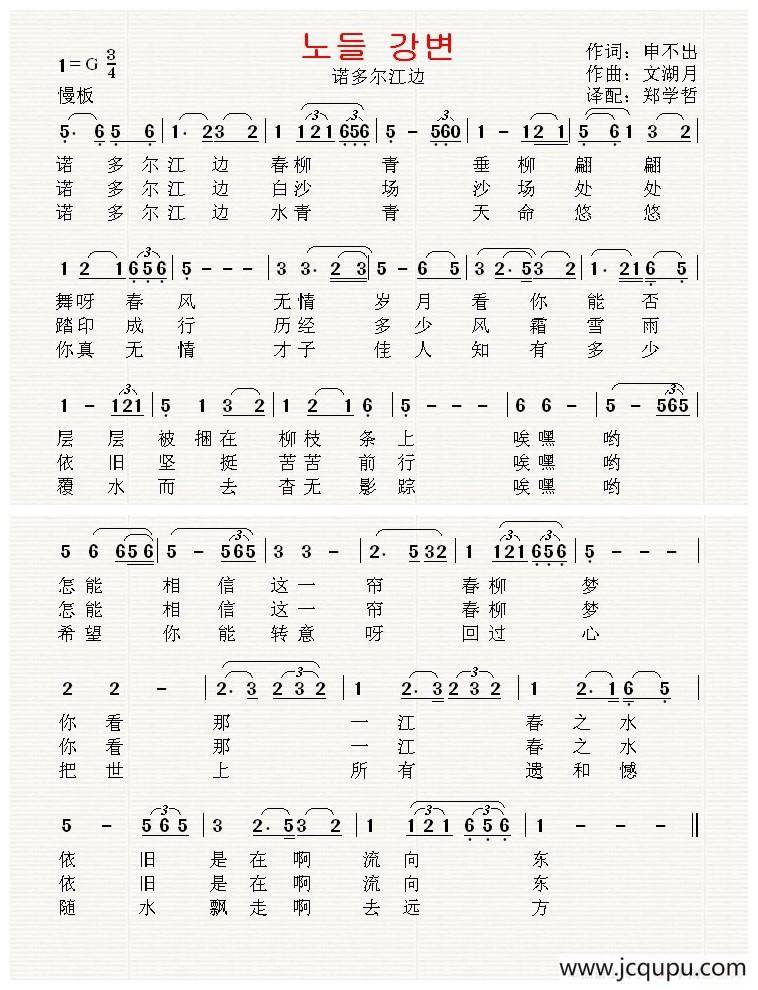 노들 강변
诺多尔江边
1=G 3/4
慢板
作词：申不出
作曲：文湖月
译配：郑学哲
5· 6 5 6 | 1· 2 3 2 | 1 121 656 | 5 - 560 | 1 - 121 | 5 6 1 | 3 2 |
诺 多 尔 江 边 春 柳 青 垂 柳 翩 翩
诺 多 尔 江 边 白 沙 场 沙 场 处 处
诺 多 尔 江 边 水 青 青 天 命 悠 悠
1 2 1 656 | 5 - - - | 3 3· 2 3 | 5 - 6 5 | 3 2· 5 3 2 | 1· 21 6 5 |
舞 呀 春 风 无 情 岁 月 看 你 能 否
踏 印 成 行 历 经 多 少 风 霜 雪 雨
你 真 无 情 才 子 佳 人 知 有 多 少
1 - 121 | 5 1 3 2 | 1 2 1 6 | 5 - - - | 6 6 - | 5 - 565 |
层 层 被 捆 在 柳 枝 条 上 唉 嘿 哟
依 旧 坚 挺 苦 苦 前 行 唉 嘿 哟
覆 水 而 去 杳 无 影 踪 唉 嘿 哟
5 6 656 | 5 - 565 | 3 3 - | 2· 5 32 | 1 121 656 | 5 - - - |
怎 能 相 信 这 一 帘 春 柳 梦
怎 能 相 信 这 一 帘 春 柳 梦
希 望 你 能 转 意 呀 回 过 心
2 2 - | 2· 3 232 | 1 2· 3 232 | 1 2· 1 6 5 |
你 看 那 一 江 春 之 水
你 看 那 一 江 春 之 水
把 世 上 所 有 遗 和 憾
5 - 565 | 3 2· 5 3 2 | 1 121 656 | 1 - - ‖
依 旧 是 在 啊 流 向 东
依 旧 是 在 啊 流 向 东
随 水 飘 走 啊 去 远 方
www.jcqupu.com